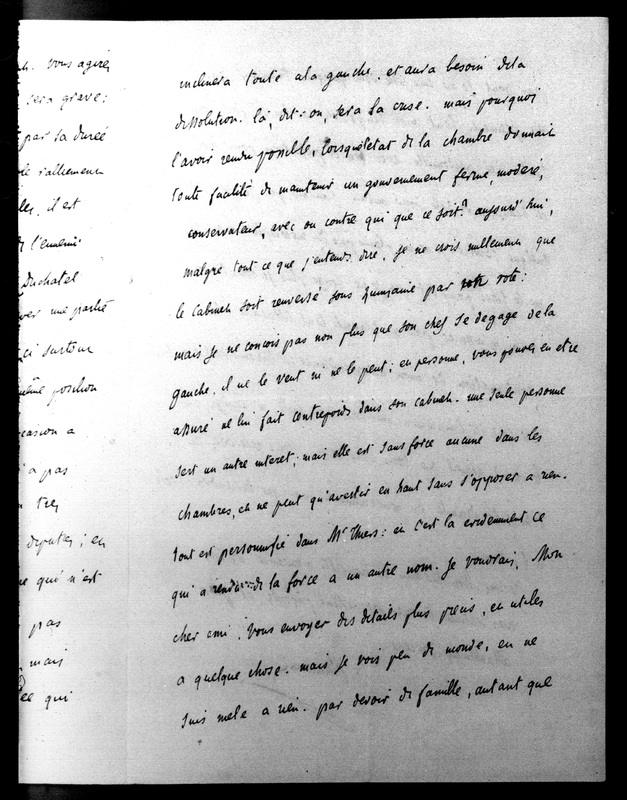 h. vous agirez
sera grave:
par sa durée
de ralliement
les, il est
de l'ennemi
Duchatel
ver une partie
ci surtout
même position
casion a
a pas
tres
deputés; et
ne qui n'est
pas
mais
ée qui
inclinera toute a la gauche et aura besoin de la
dissolution. là, dit-on, sera la crise. mais pourquoi
l'avoir rendu possible, lorsque l'etat de la chambre donnait
toute facilité de maintenir un gouvernement ferme, modéré,
conservateur, avec ou contre qui que ce soit? aujourd'hui,
malgré tout ce que j'entends dire, je ne crois nullement que
le cabinet soit renversé sous quinzaine par vote:
mais je ne conçois pas non plus que son chef se degage de la
gauche. il ne le veut ni ne le peut; en personne, vous pouvez en etre
assuré ne lui fait contrepoids dans son cabinet. une seule personne
sert un autre interet; mais elle est sans force aucune dans les
chambres, et ne peut qu'avertir en haut sans s'opposer a rien.
tout est personnifié dans Mr Thiers: et c'est la evidemment ce
qui a rendu de la force a un autre nom. je voudrais, Mon
cher ami, vous envoyer des details plus precis, et utiles
a quelque chose. mais je vois peu de monde, et ne
suis melé a rien. par devoir de famille, autant que